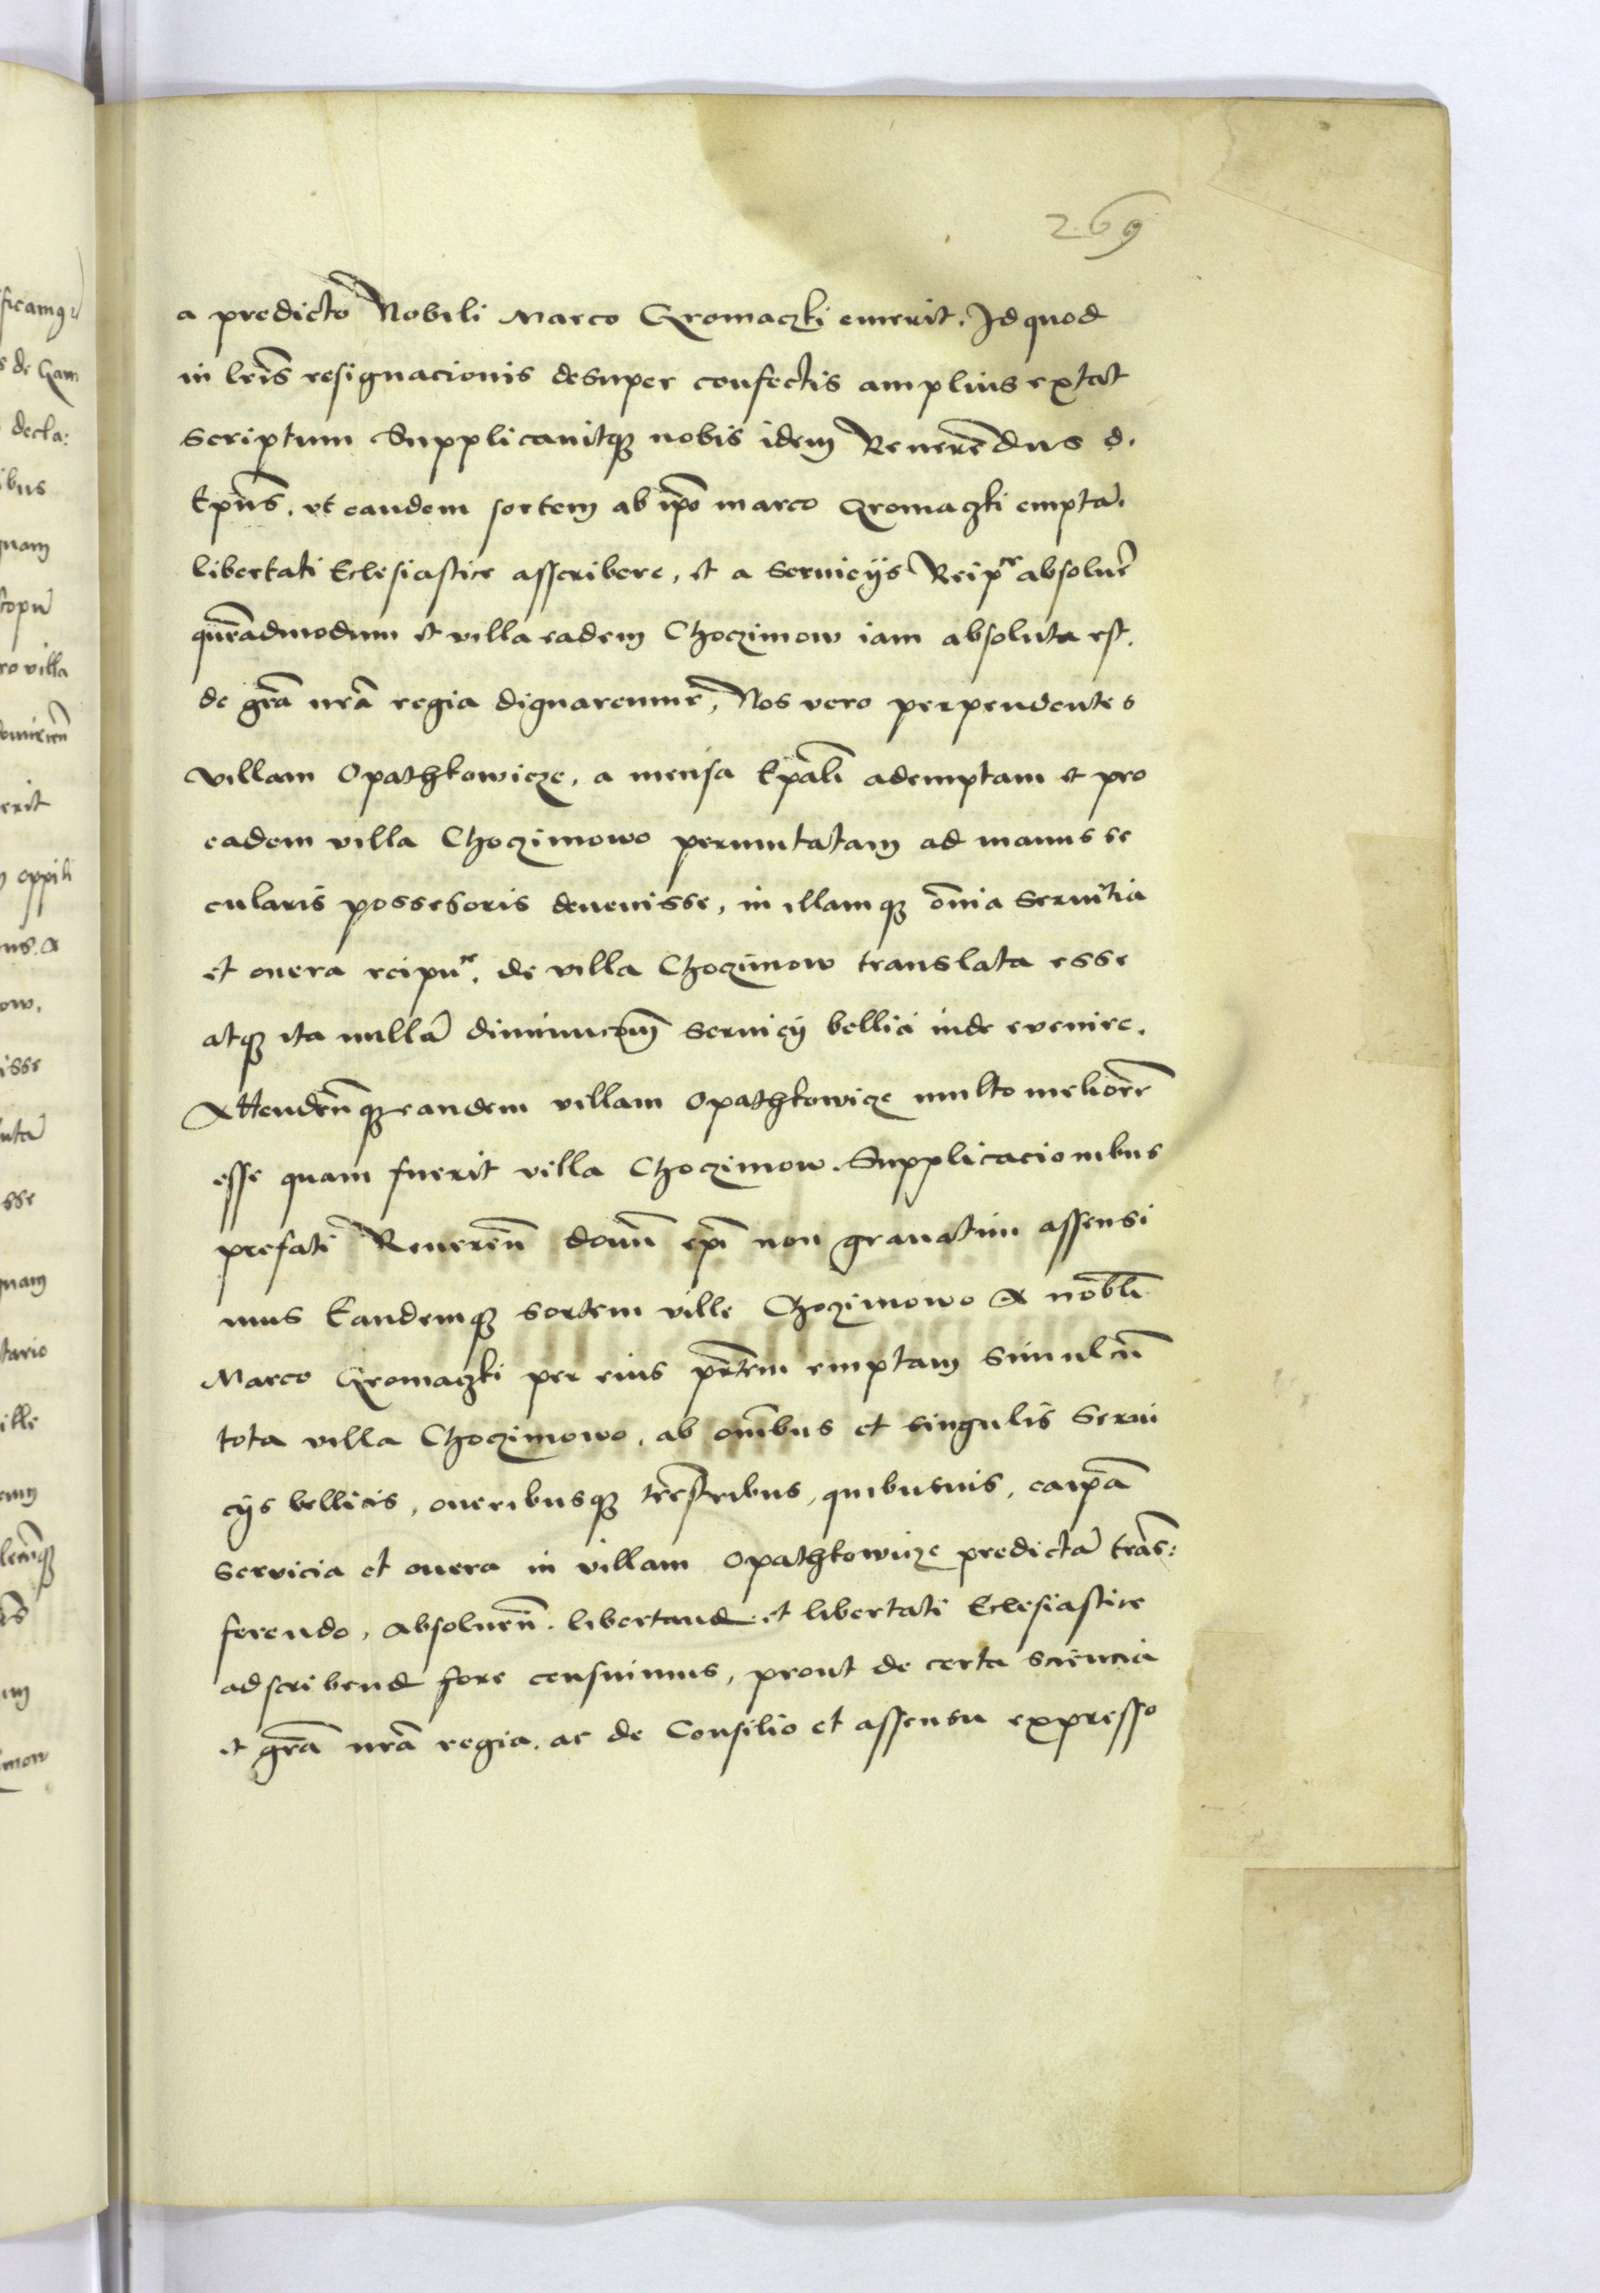 269
a predicto Nobili Marco Gromaczki emerit. Id quod
in lr̃is resignacionis desuper confectis amplius extat
scriptum Supplicauitqȝ nobis idem Reuerẽdus d.
Ep̃us. vt eandem sortem ab ip̃o marco Gromaczki emptã.
libertati Eclesiastice asscribere, et a seruicijs Reip͛ absoluer̃
quẽadmodum et villa eadem Choczimow iam absoluta est.
de gr̃a nr̃a regia dignaremur̃, Nos vero perpendentes
villam Opathkowicze, a mensa Ep̃ali ademptam et pro
eadem villa Choczimowo permutatam ad manus se
cularis possessoris deuenisse, in illamqȝ om̃ia seruitia
et onera reipu͛. de villa Choczimow translata esse
atqȝ ita nullã diminucõm̃ seruicij bellici inde evenire.
Attendeñqȝ eandem villam Opathkowicze multo meliorẽ
esse quam fuerit villa Choczimow. Supplicacionibus
prefati Reuereñ domĩ ep̃i non grauatim assensi
mus Eandemqȝ sortem ville Choczimowo A nobl̃i
Marco Gromaczki per eius p̃rtem emptam simulcũ
tota villa Choczimowo, ab om̃ibus et singulis serui
cijs bellicis, oneribusqȝ terrẽstribus, quibusuis, ea ip̃a
servicia et onera in villam Opathkowicze predictã trãs:
ferendo, absolueñ. libertand et libertati Eclesiastice
adscribend fore censuimus, prout de certa sciencia
et gr̃a nr̃a regia. ac de Consilio et assensu expresso